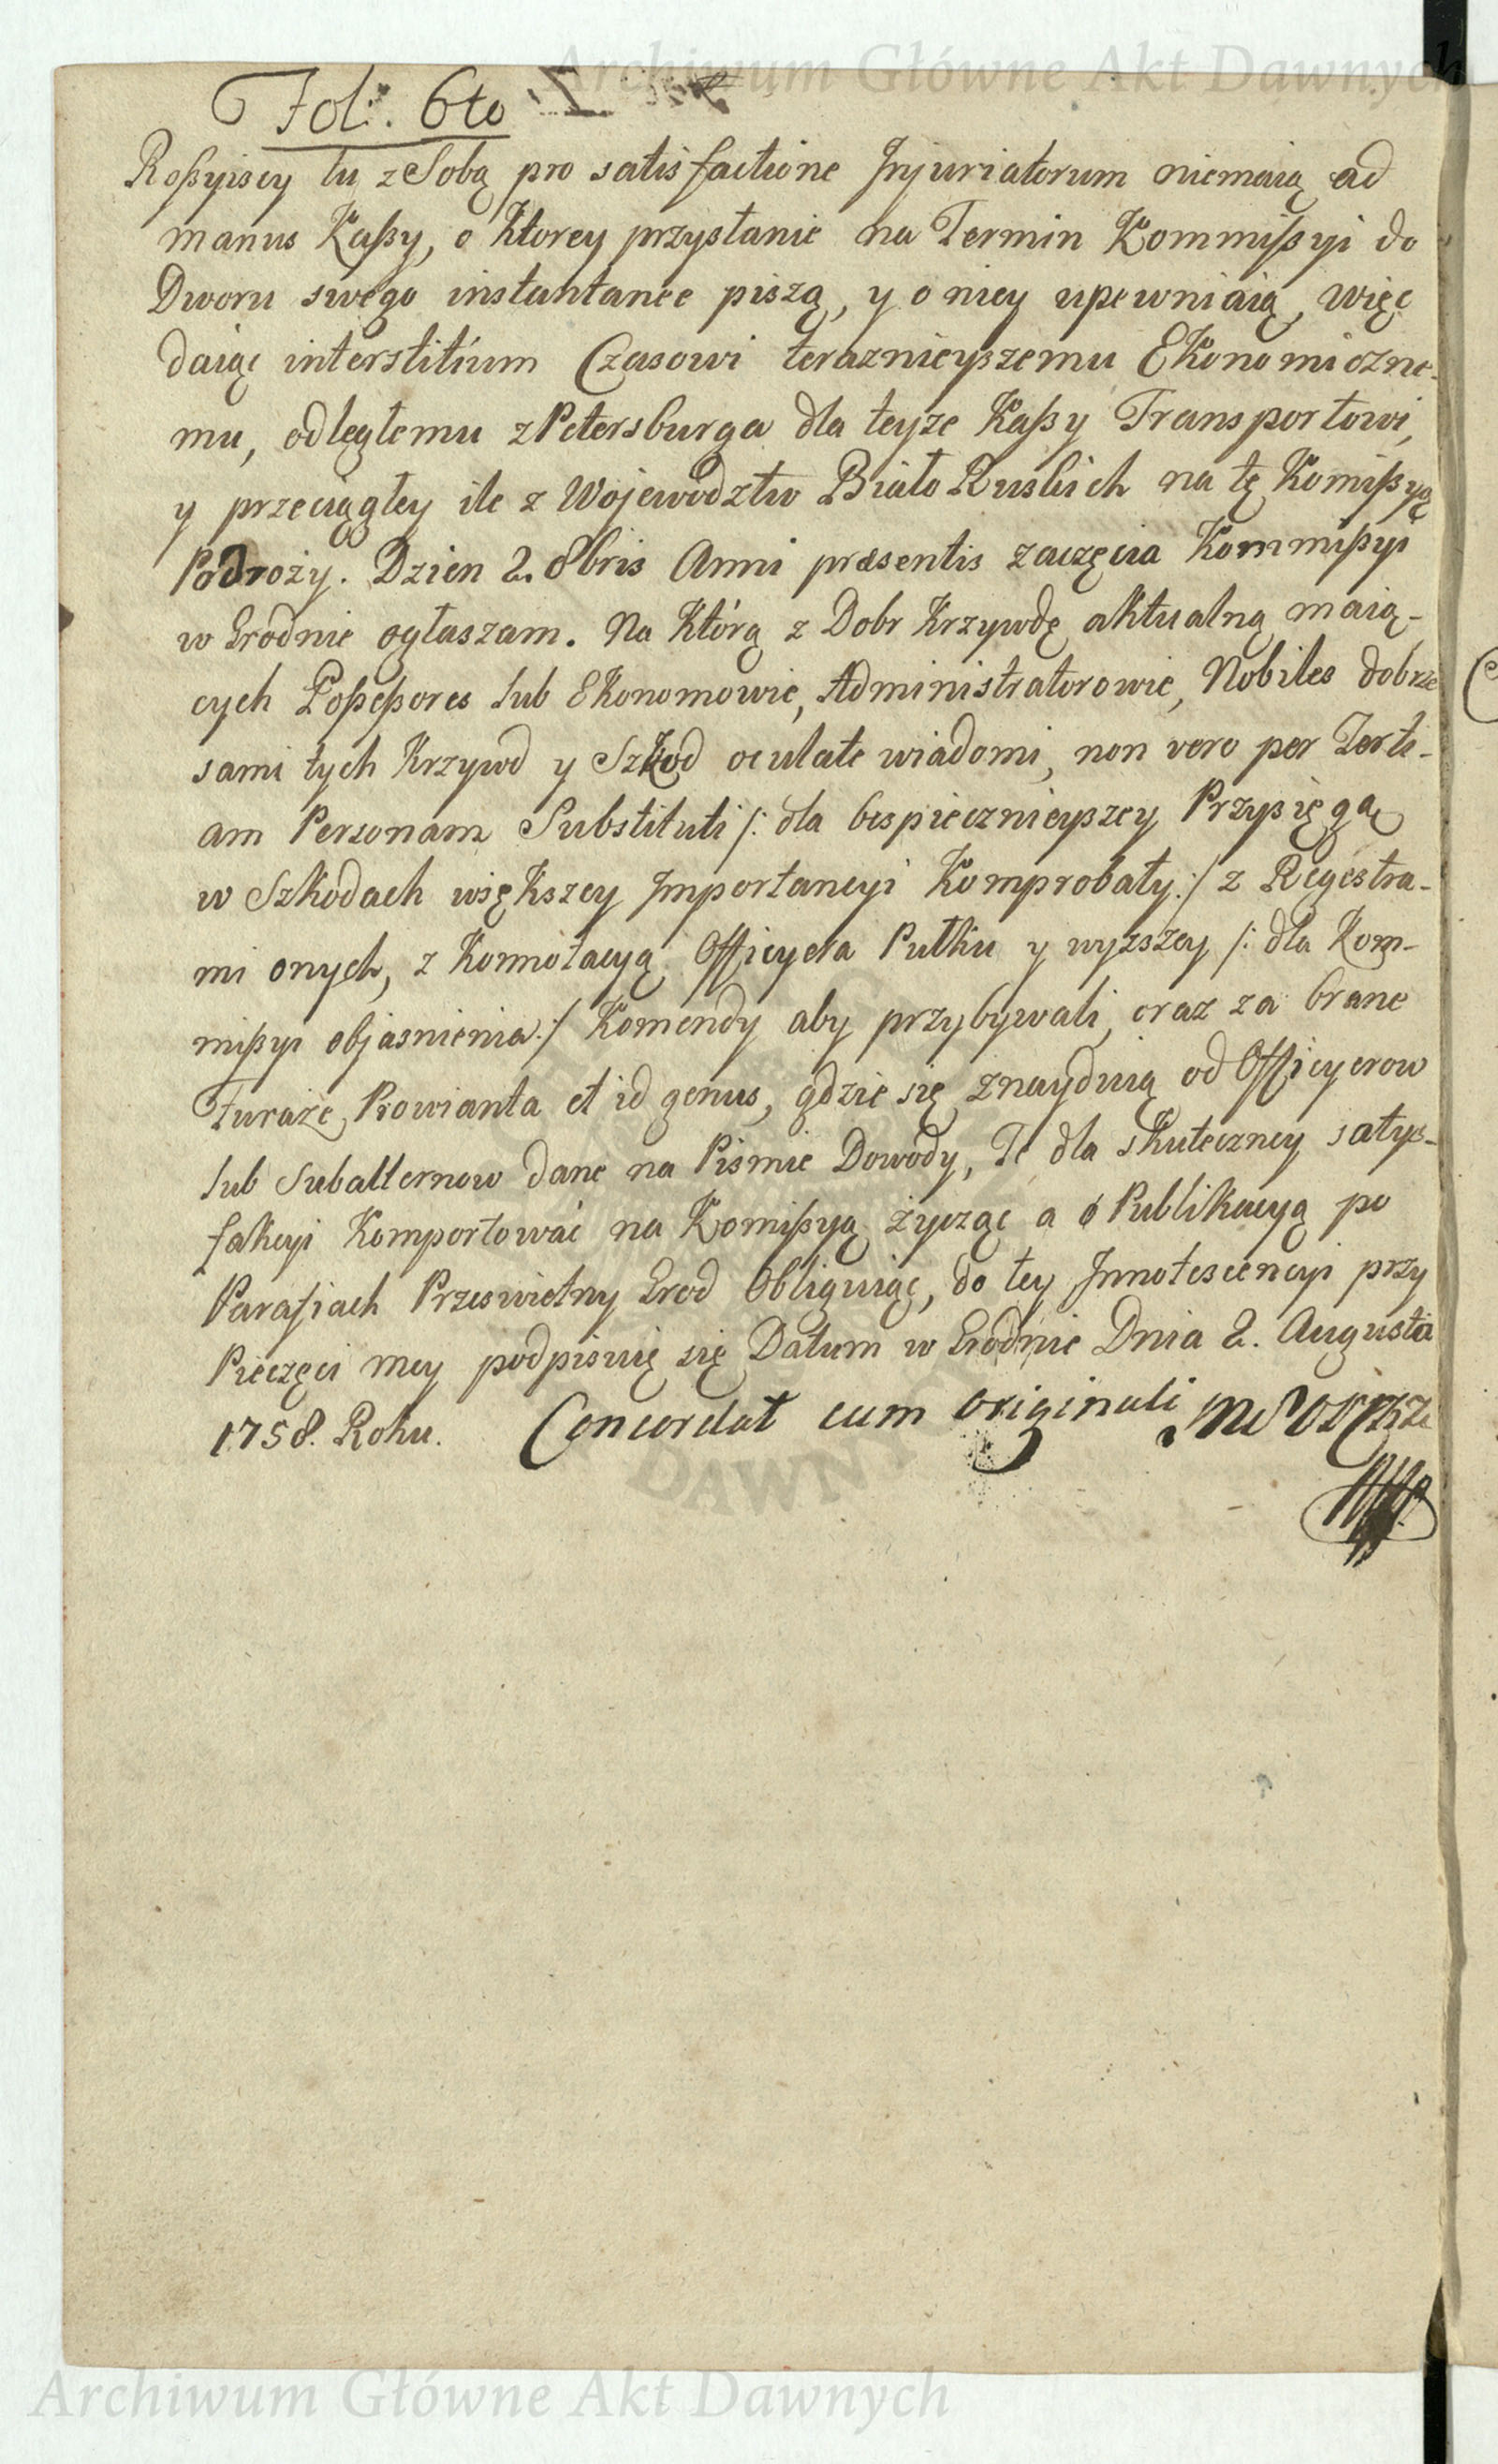 Archiwum Główne Akt Dawnych
Fol: 6to
Roßyiscy tu z Sobą pro satisfactione Injuriatorum niemaią ad
manus Kaßy, o Ktorey przysłanie na Termin Kommißyi do
Dworu swego instantanee piszą, y o niey upewniaią, więc
daiąc interstitium Czasowi teraznieyszemu Ekonomiczne-
mu, odległemu z Petersburga dla teyze Kaßy Transportowi,
y przeciągłey ile z Wojewodztw Biało Ruskich na tę Komißyą
Podroży. Dzien 2. 8bris Anni præsentis zaczęcia Kommißyi
w Grodnie ogłaszam. Na Którą z Dobr Krzywdę aktualną maią-
cych Poßeßores lub Ekonomowie, Administratorowie, Nobiles dobrze
sami tych Krzywd y Szkod oculate wiadomi, non vero per Terti-
am Personam Substituti /: dla bespiecznieyszey Przysięgą
w Szkodach większey Importancyi Komprobaty :/ z Regestra-
mi onych, z Konnotacyą Officyera Pułku y wyzszey /: dla Kom-
mißyi objasnienia :/ Komendy aby przybywali, oraz za brane
Furaże, Prowianta et id genus, gdzie się znayduią od Officyerow
lub Subalternow dane na Pismie Dowody, Te dla skuteczney satys-
fakcyi Komportować na Komißyą życząc a o Publikacyą po
Parafiach Przeswietny Grod Obliguiąc, do tey Innotescencyi przy
Pieczęci mey podpisuię się Datum w Grodnie Dnia 2. Augusta
1758. Roku. Concordat cum originali
DAWNYCH
Archiwum Główne Akt Dawnych